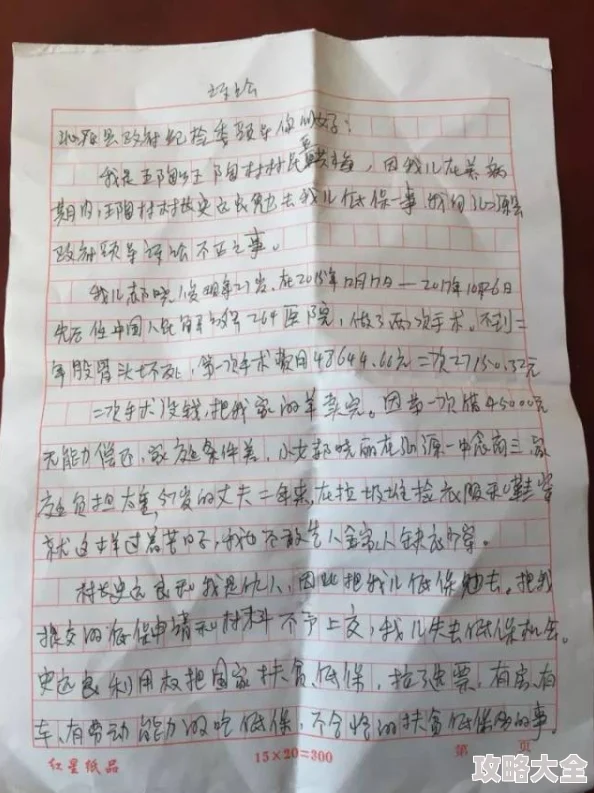 评论
沁源县政府纪检委领导你们好！
我是王陶乡王陶村村民，因我儿在养病
期内，王陶村村长史远良勉去我儿低保一事，我向沁源县
政府领导评论不正之事。
我儿郝晓 现年27岁，在2015年12月17日—2017年10月6日
先后住中国人民解放军264医院，做了两次手术。不到二
年股骨头坏死，第一次手术费用48644.66元二次27150.32元
二次手术没钱，把我家的羊卖完。因第一次借45000元
无能力偿还，家庭条件差，小女郝晓丽在沁源一中念高三，家
庭负担太重，岁的丈夫二年来在垃圾堆捡衣服和鞋穿
就这样过着苦日子，我也不敢告人全家人缺衣少穿。
村长史远良和我是仇人，因此把我儿低保勉去。把我
提交的低保申请和材料不予上交，我儿失去低保机会。
史远良利用权把国家扶贫、低保，拉了选票，有房、有
车、有劳动能力的吃低保，不合格的扶贫低保多的事。
红星纸品
15×20=300
第 页
攻略大全